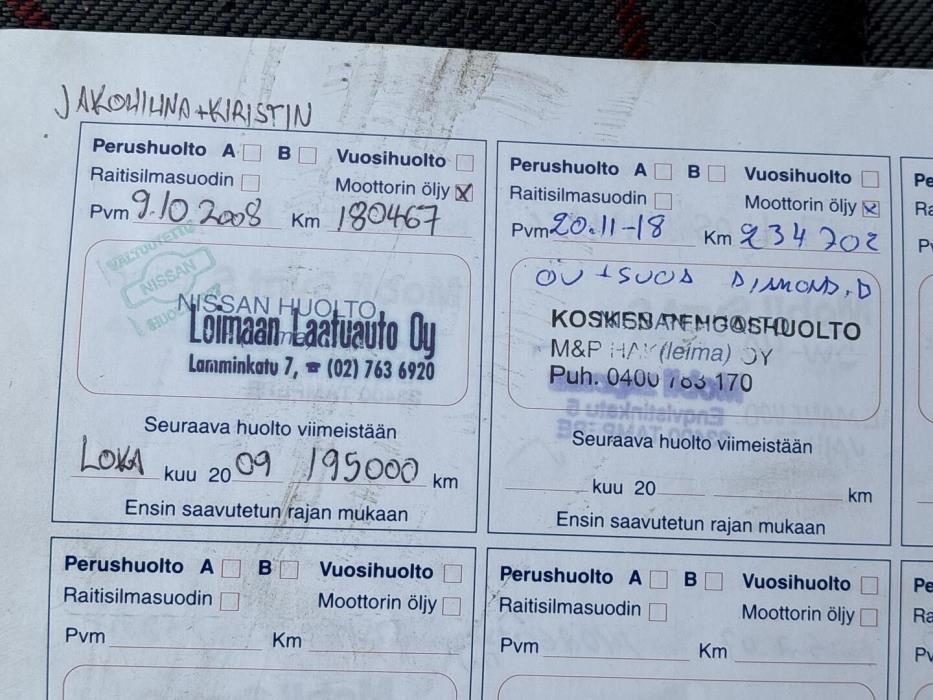 JAKOHIHNA+KIRISTIN
Perushuolto A B Vuosihuolto
Raitisilmasuodin Moottorin öljy X
Pvm 9.10 2008 Km 180467
VALTUUTETTU
NISSAN
HUOLTO
NISSAN HUOLTO
Loimaan Laatuauto Oy
Lamminkatu 7, ☎ (02) 763 6920
Seuraava huolto viimeistään
LOKA kuu 20 09 195000 km
Ensin saavutetun rajan mukaan
Perushuolto A B Vuosihuolto
Raitisilmasuodin Moottorin öljy X
Pvm 20.11-18 Km 234 702
ÖLJ + SUOD
KOSKEN RENGASHUOLTO
M&P (leima) OY
Puh. 0400 763 170
Seuraava huolto viimeistään
kuu 20 km
Ensin saavutetun rajan mukaan
Perushuolto A B Vuosihuolto
Raitisilmasuodin Moottorin öljy
Pvm Km
Perushuolto A B Vuosihuolto
Raitisilmasuodin Moottorin öljy
Pvm Km